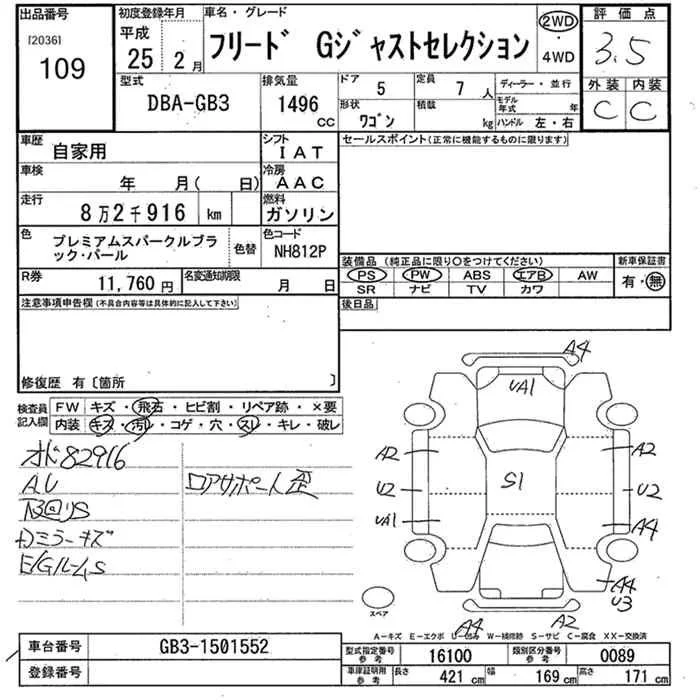 出品番号
[2036]
109
初度登録年月
平成
25 2 月
車名・グレード
フリード Gジャストセレクション
2WD
4WD
評価点
3.5
外装 内装
C C
型式
DBA-GB3
排気量
1496
cc
ドア
5
定員
7 人
形状
ワゴン
積載
kg
ディーラー・並行
モデル年式 年
ハンドル 左・右
車歴
自家用
シフト
IAT
車検
年 月( 日)
冷房
AAC
走行
8万2千916 km
燃料
ガソリン
色
プレミアムスパークルブラック・パール
色替
色コード
NH812P
R券
11,760 円
名変通知期限
月 日
セールスポイント(正常に機能するものに限ります)
装備品 (純正品に限り○をつけてください)
PS PW ABS エアB AW
SR ナビ TV カワ
新車保証書
有・無
後日品
注意事項申告欄(不具合内容等は具体的に記入して下さい)
修復歴 有〔箇所 〕
検査員記入欄
FW キズ・飛石・ヒビ割・リペア跡・×要
内装 キズ・汚レ・コゲ・穴・スレ・キレ・破レ
オド82916
AU
下回りS
カミラーキズ
E/GルームS
ロアサポート歪
A4
UA1
A2
A2
S1
U2
U2
UA1
A4
A4
U3
A4
A2
スペア
A―キズ E―エクボ U―凹み W―補修跡 S―サビ C―腐食 XX―交換済
車台番号
GB3-1501552
登録番号
型式指定番号
参考
16100
類別区分番号
参考
0089
車庫証明用
参考
長さ
421 cm
幅
169 cm
高さ
171 cm